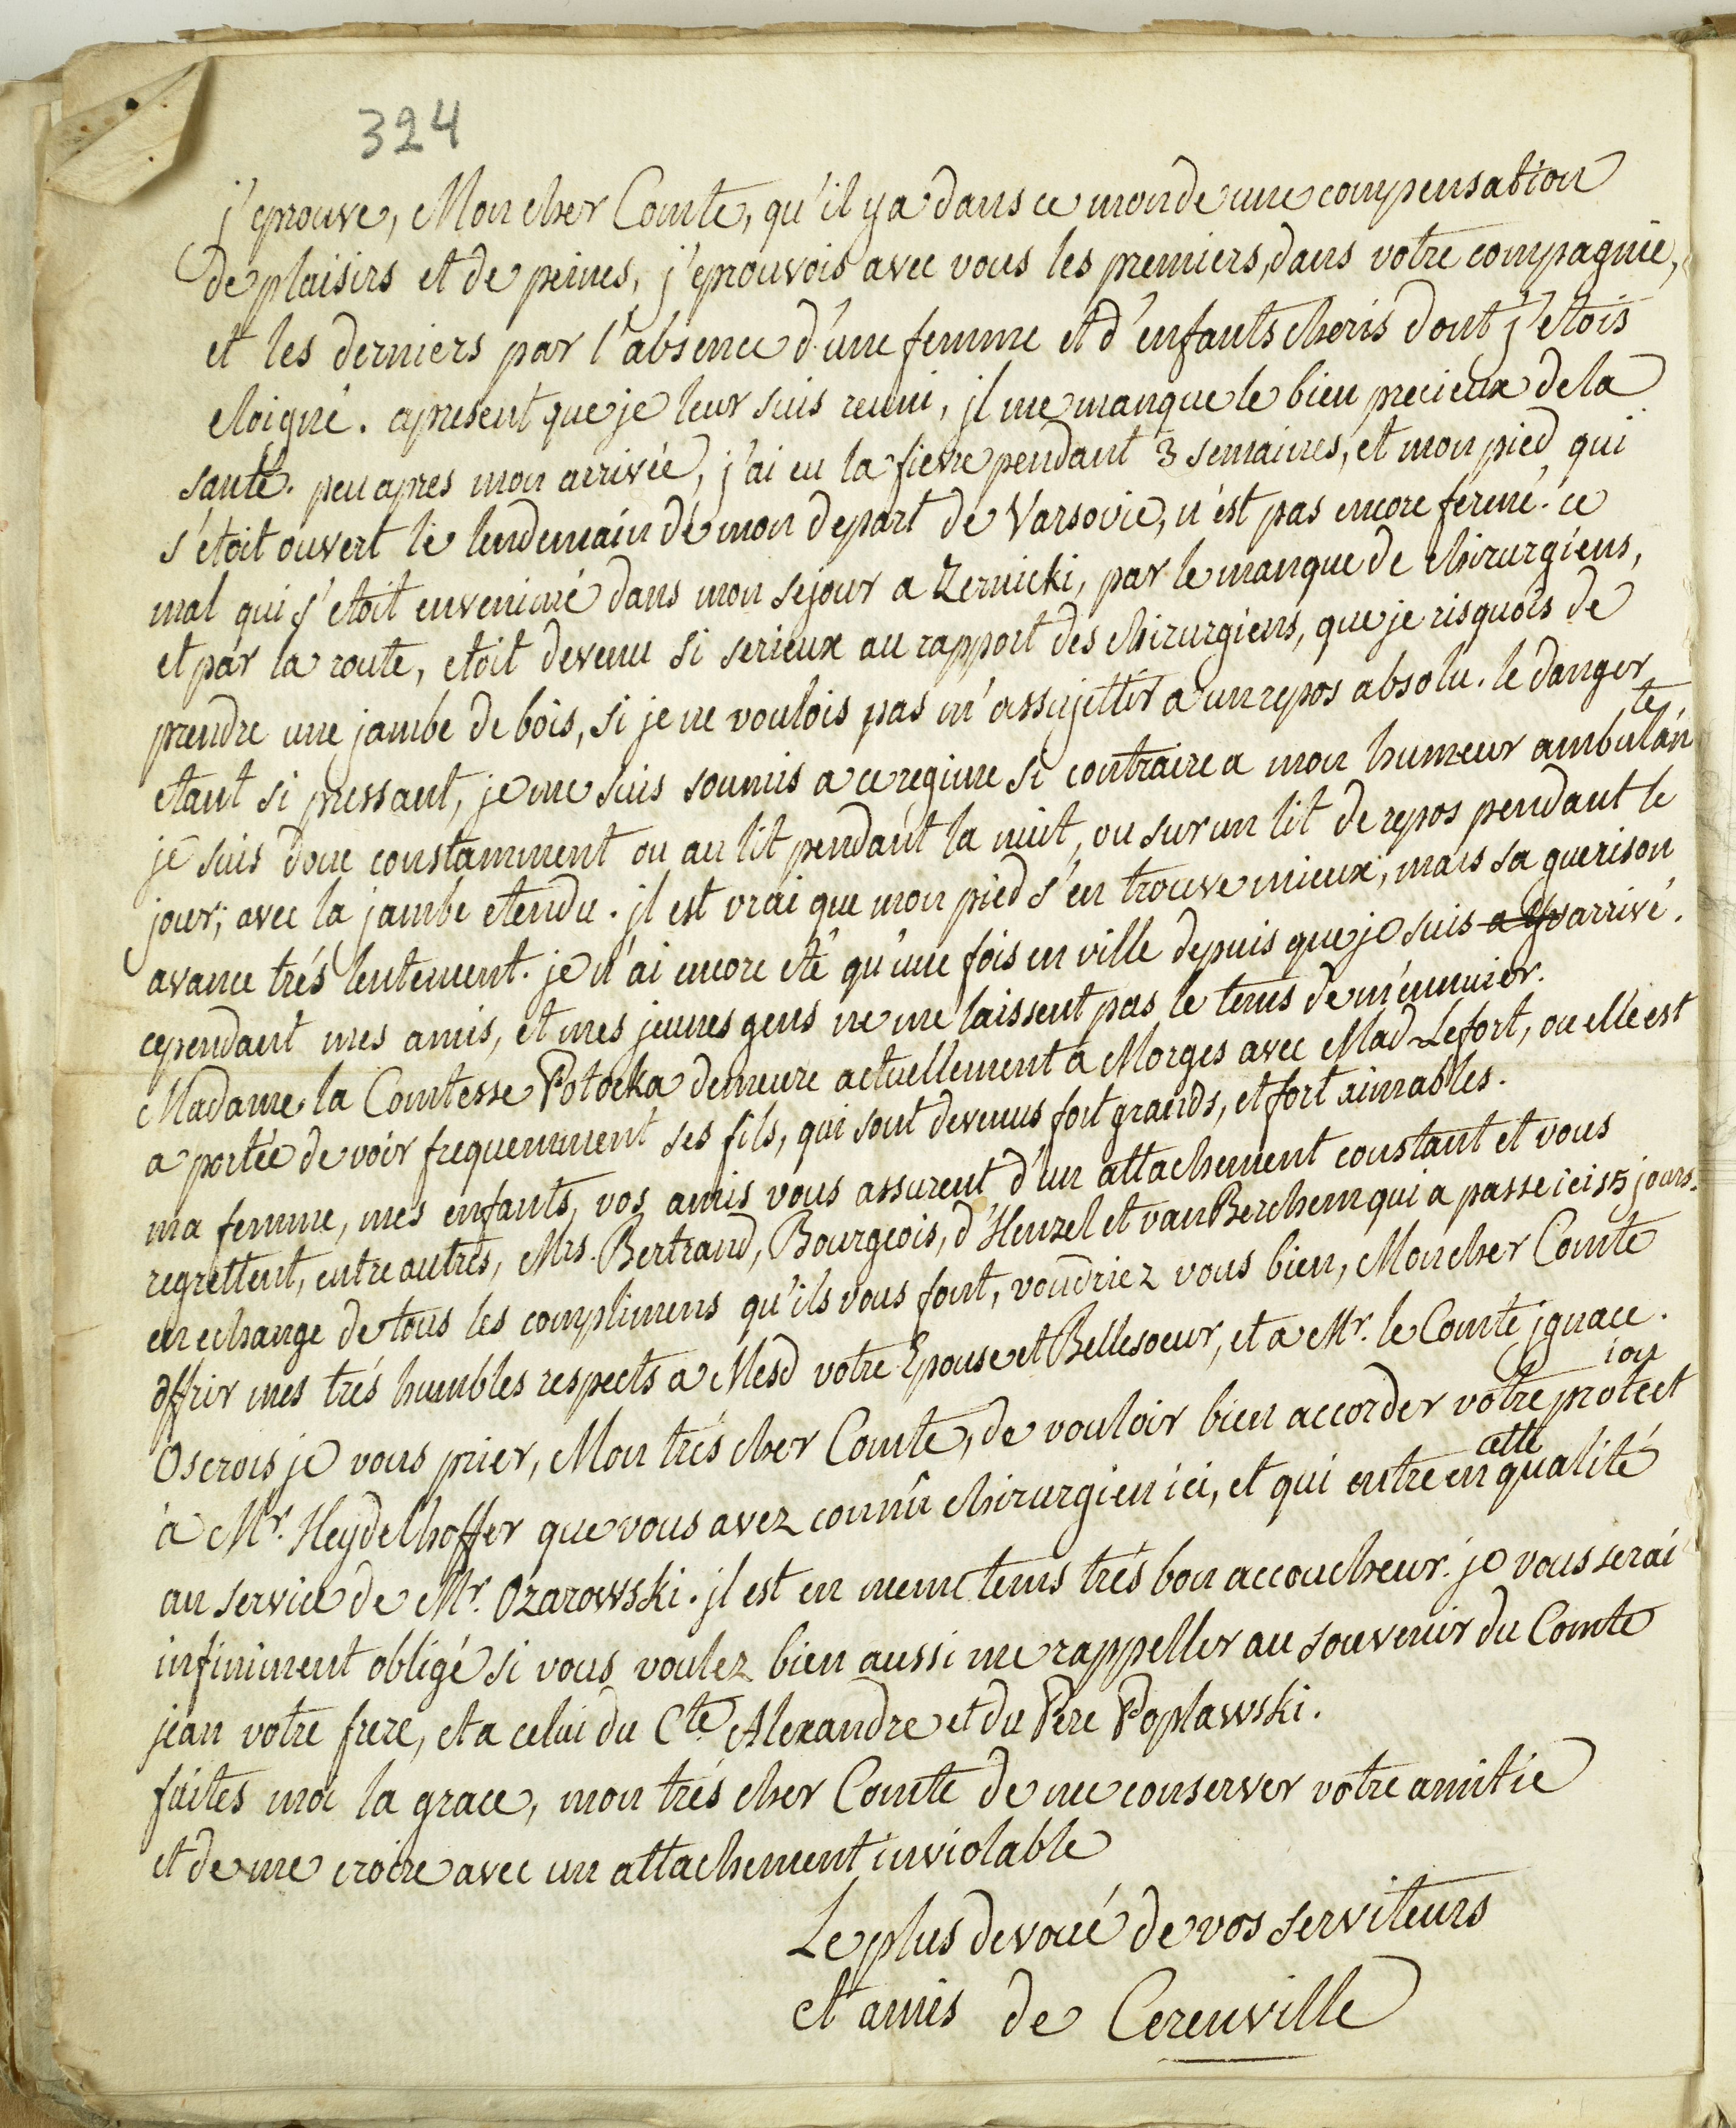 324
j'eprouve, Mon cher Comte, qu'il y a dans ce monde une compensation
de plaisirs et de peines, j'eprouvois avec vous les premiers, dans votre compagnie,
et les derniers par l'absence d'une femme et d'enfants cheris dont j'etois
eloigné. apresent que je leur suis reuni, jl me manque le bien precieux de la
santé. peu apres mon arrivée, j'ai eu la fievre pendant 3 semaines, et mon pied qui
s'étoit ouvert le lendemain de mon depart de Varsovie, n'est pas encore fermé. ce
mal qui s'etoit envenimé dans mon sejour a Zernicki, par le manque de chirurgiens,
et par la route, etoit devenu si serieux au rapport des chirurgiens, que je risquois de
prendre une jambe de bois, si je ne voulois pas m'assujettir a un repos absolu. le danger
etant si pressant, je me suis soumis a ce regime si contraire a mon humeur ambulante
je suis donc constamment ou au lit pendant la nuit, ou sur un lit de repos pendant le
jour, avec la jambe etendu. jl est vrai que mon pied s'en trouve mieux, mais sa guerison
avance trés lentement. je n'ai encore eté qu'une fois en ville depuis que je suis arrivé.
cependant mes amis, et mes jeunes gens ne me laissent pas le tems de m'ennuier.
Madame la Comtesse Potocka demeure actuellement à Morges avec Mad Lefort, ou elle est
a portée de voir frequemment ses fils, qui sont devenus fort grands, et fort aimables.
ma femme, mes enfants, vos amis vous assurent d'un attachement constant et vous
regrettent, entre autres, Mrs. Bertrand, Bourgeois, d'Henzel et van Berchem qui a passe ici 15 jours.
en echange de tous les complimens qu'ils vous font, voudriez vous bien, Mon cher Comte
offrir mes trés humbles respects a Mesd votre Epouse et Bellesoeur, et a Mr. le Comte jgnace.
Oserois je vous prier, Mon trés cher Comte, de vouloir bien accorder votre protection
à Mr. Heydelhoffer que vous avez connû chirurgien ici, et qui entre en cette qualité
au service de Mr. Ozarowski. jl est en meme tems trés bon accoucheur. je vous serai
infiniment obligé si vous voulez bien aussi me rappeller au souvenir du Comte
jean votre frere, et a celui du Cte. Alexandre et du Pere Poplawski.
faites moi la grace, mon trés cher Comte de me conserver votre amitie
et de me croire avec un attachement inviolable
Le plus devoué de vos serviteurs
et amis de Cerenville